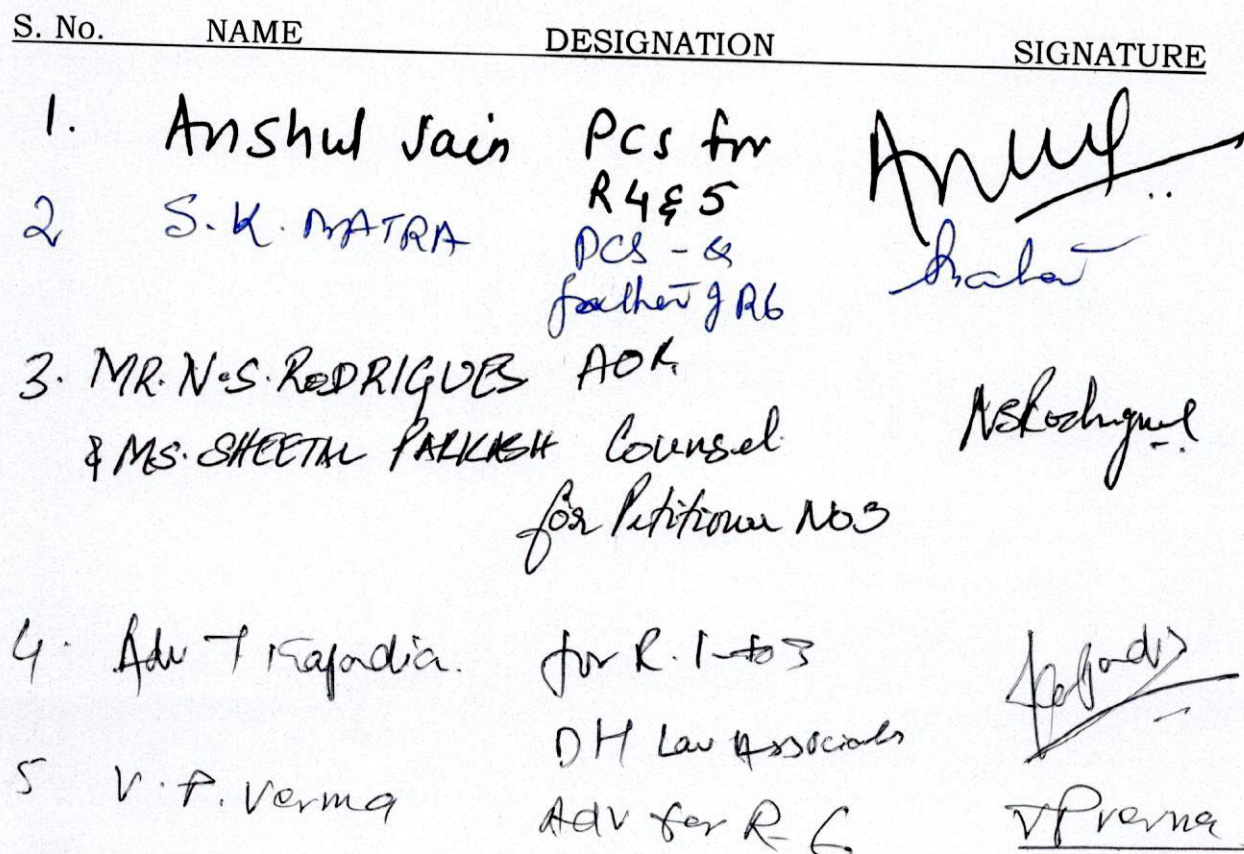 S. No. NAME DESIGNATION SIGNATURE
1. Anshul Jain PCS for
R 4 & 5
2 S. K. BATRA PCS - &
father of R6
3. MR. N.S. RODRIGUES AOR
& MS. SHEETAL PARKASH Counsel
for Petitioner No 3
NSRodrigues
4. Adv T Kapadia. for R. 1 to 3
DH Law Associates
5 V. P. Verma Adv for R-6
VPverma